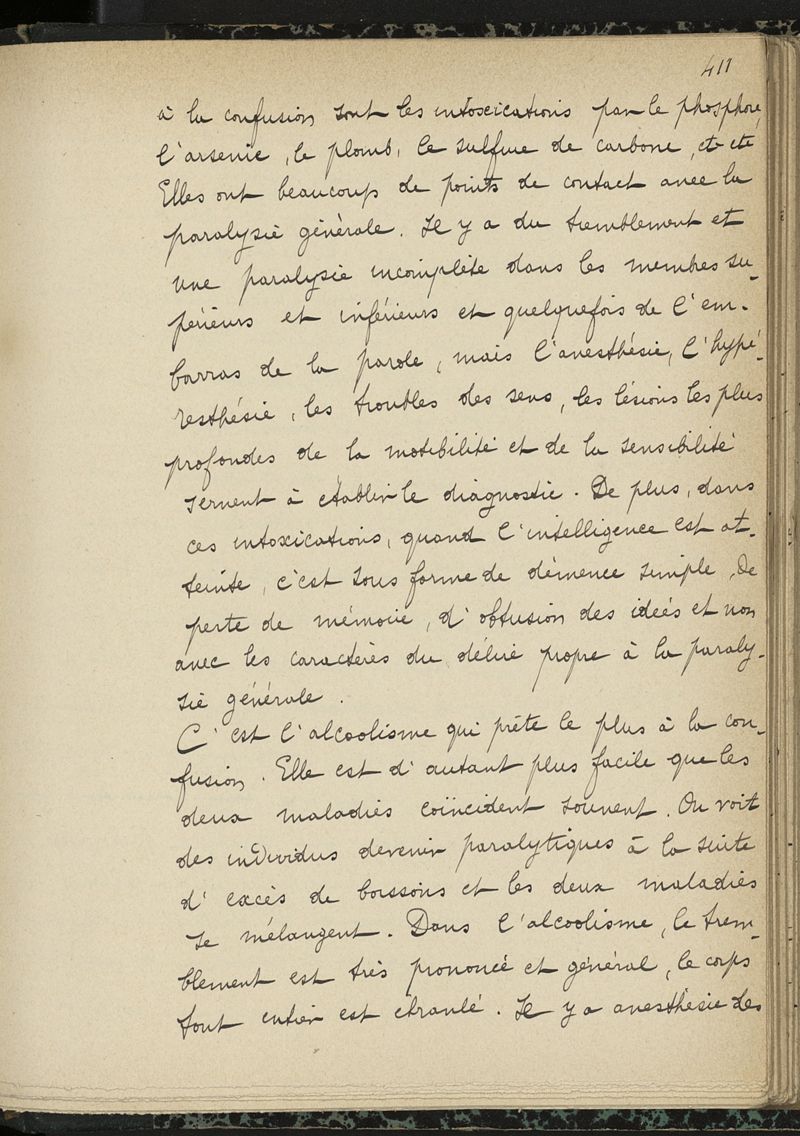 411
à la confusion sont les intoxications par le phosphore,
l'arsenic, le plomb, le sulfure de carbone, etc etc
Elles ont beaucoup de points de contact avec la
paralysie générale. Il y a du tremblement et
une paralysie incomplète dans les membres su-
périeurs et inférieurs et quelquefois de l'em-
barras de la parole, mais l'anesthésie, l'hypé-
resthésie, les troubles des sens, les lésions les plus
profondes de la motibilité et de la sensibilité
servent à établir le diagnostic. De plus, dans
ces intoxications, quand l'intelligence est at-
teinte, c'est sous forme de démence simple, de
perte de mémoire, d'obtusion des idées et non
avec les caractères du délire propre à la paraly-
sie générale.
C'est l'alcoolisme qui prête le plus à la con-
fusion. Elle est d'autant plus facile que les
deux maladies coïncident souvent. On voit
des individus devenir paralytiques à la suite
d'excès de boissons et les deux maladies
se mélangent. Dans l'alcoolisme, le trem-
blement est très prononcé et général, le corps
tout entier est ébranlé. Il y a anesthésie des